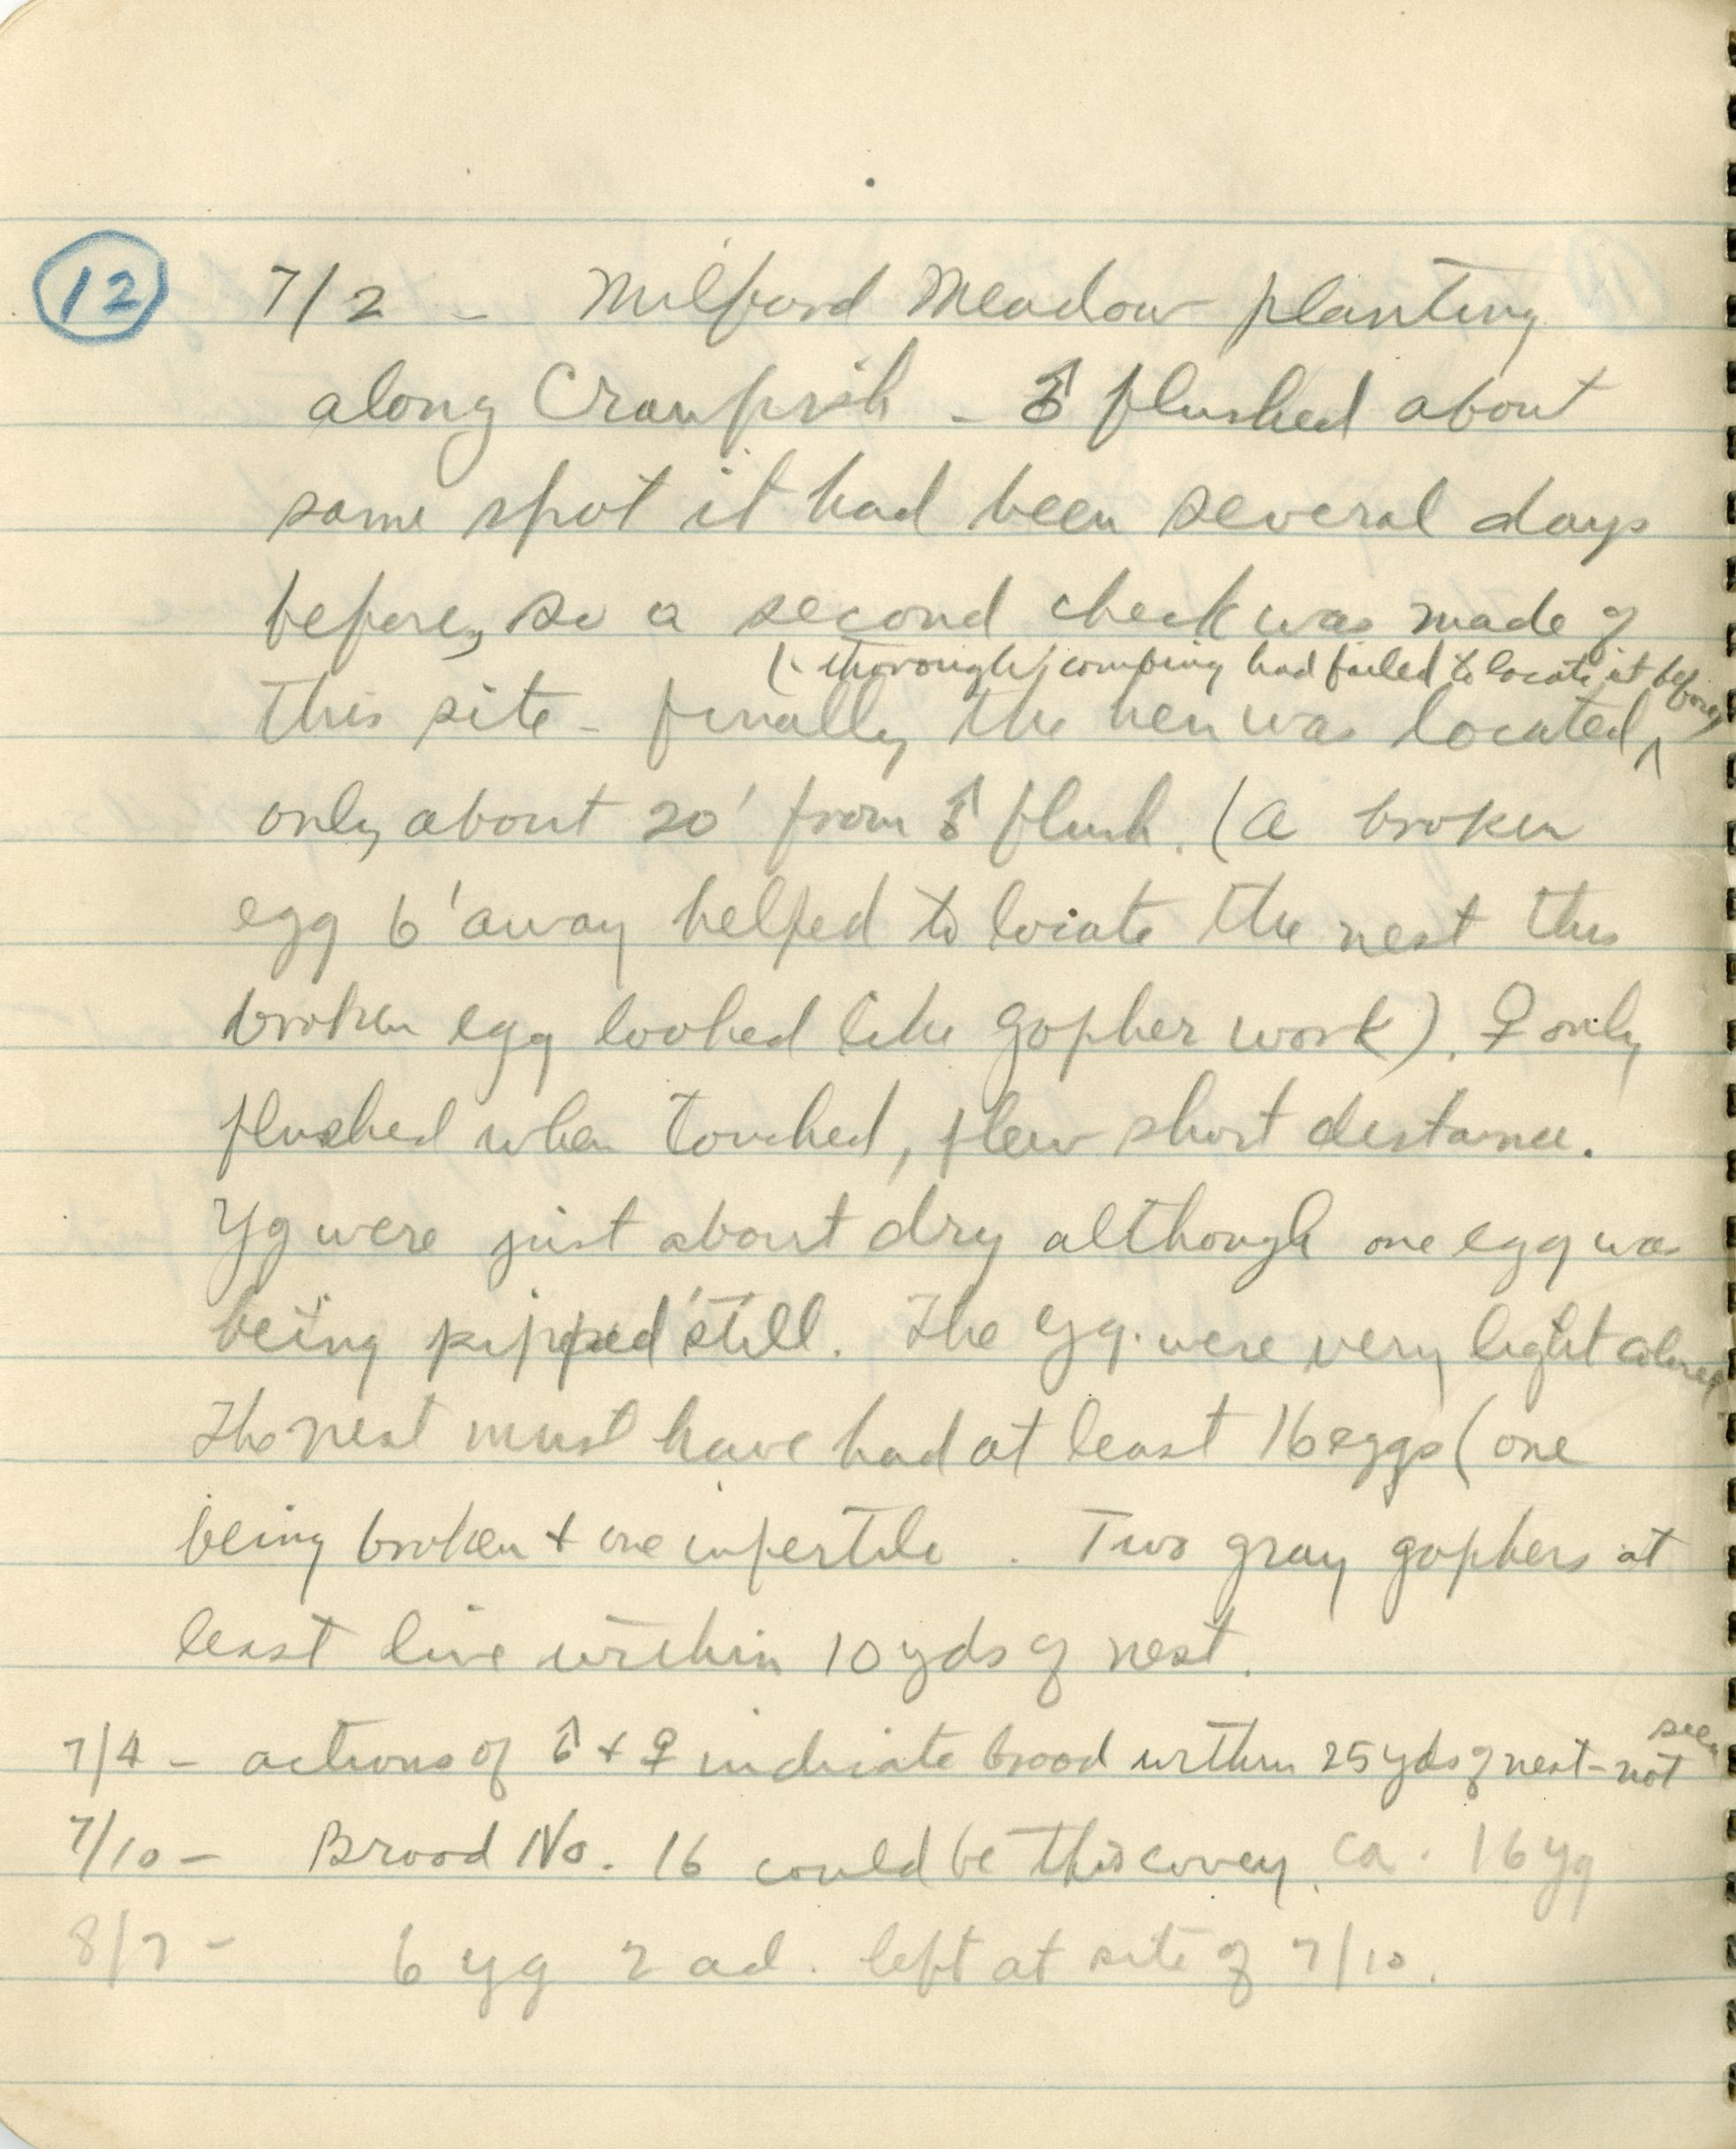 12 7/2 - Milford Meadow planting
along Crawfish - ♂ flushed about
same spot it had been several days
before, so a second check was made of
(thorough combing had failed to locate it before)
this site - finally the hen was located ^
only about 20' from ♂ flush. (a broken
egg 6' away helped to locate the nest this
broken egg looked like gopher work). ♀ only
flushed when touched, flew short distance.
Yg were just about dry although one egg was
being pipped still. The yg. were very light colored
The nest must have had at least 16 eggs (one
being broken + one infertile . Two gray gophers at
least live within 10 yds of nest.
7/4 - actions of ♂ + ♀ indicate brood within 25 yds of nest - not seen
7/10 - Brood No. 16 could be this covey. ca. 16 yg
8/7 - 6 yg 2 ad. left at site of 7/10.